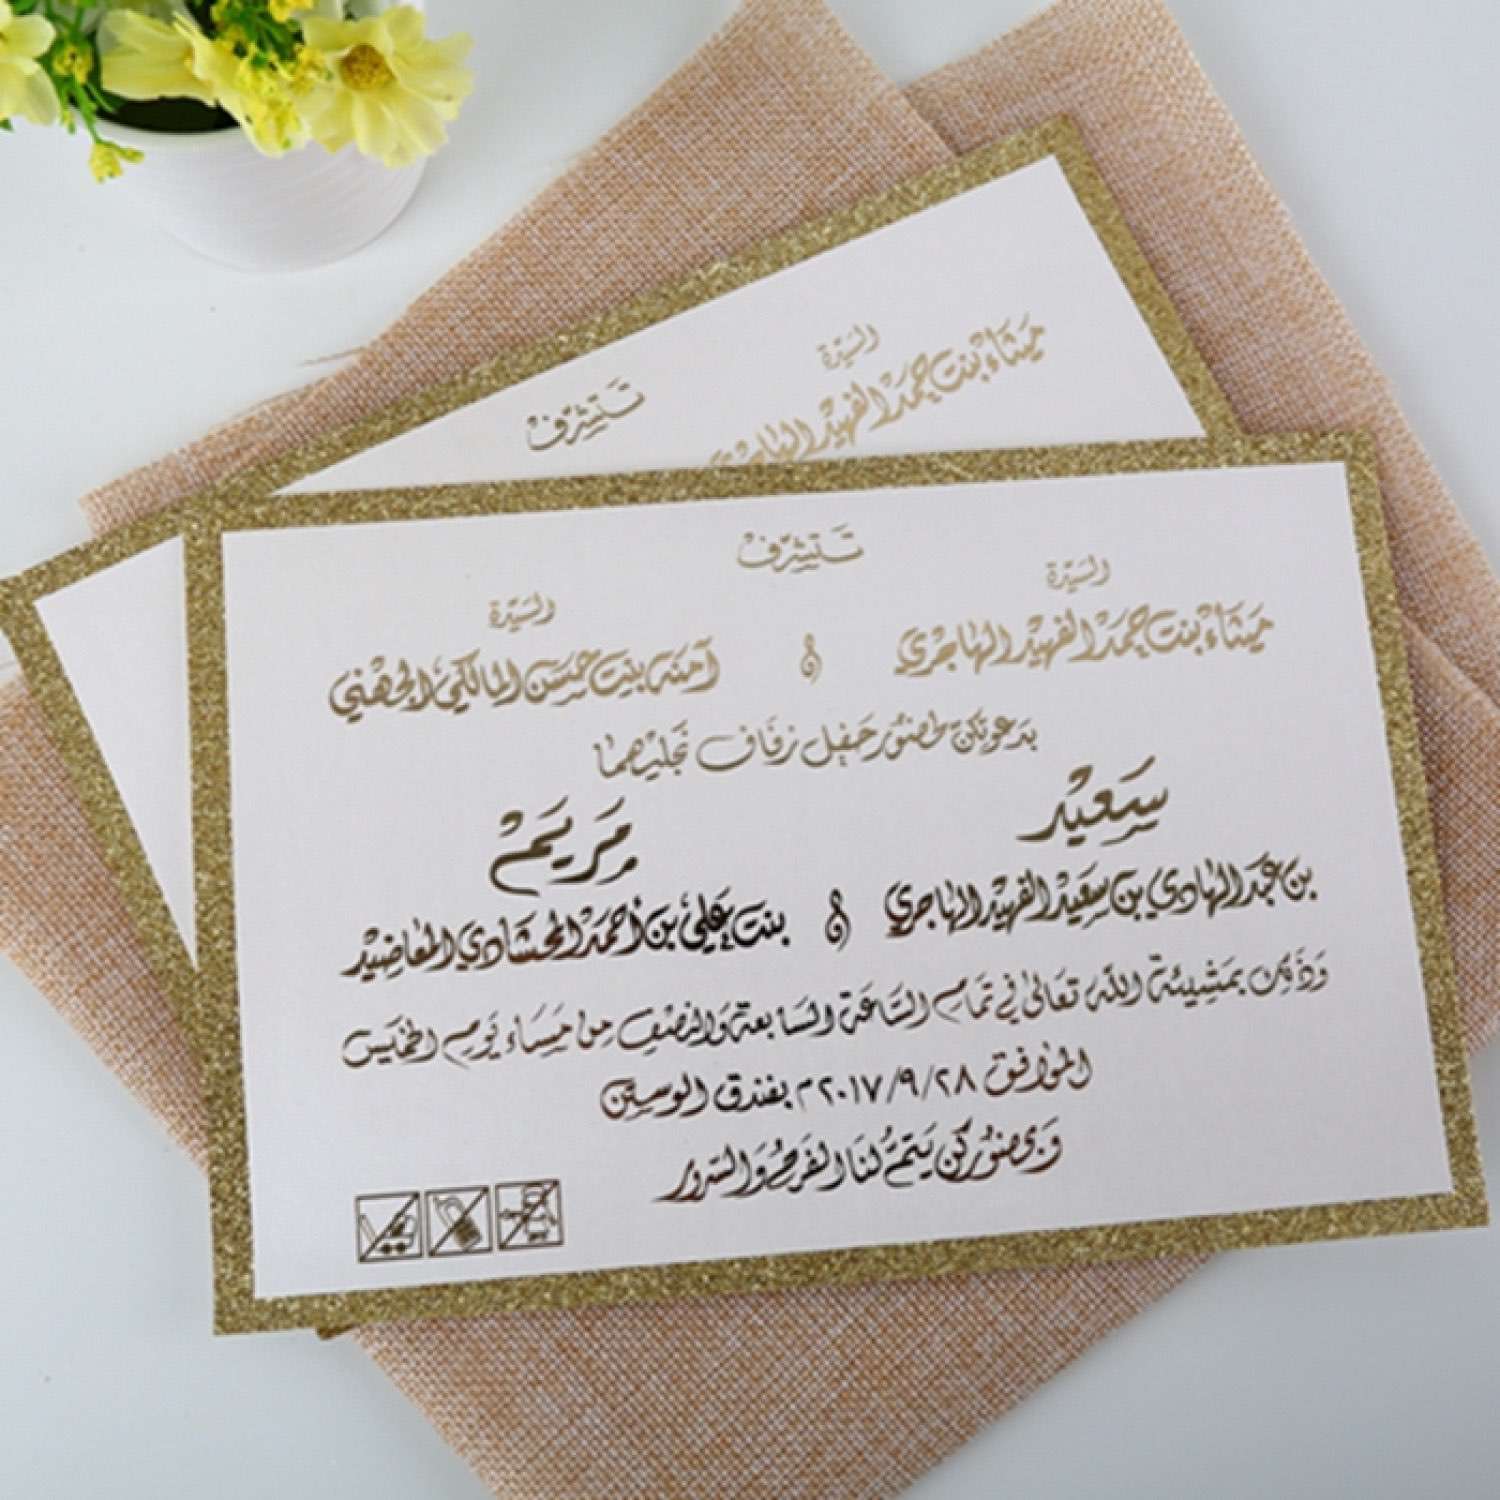 تتشرف
السيدة
ميثاء بنت حمد الفهيد الهاجري
تتشرف
السيدة
السيدة
ميثاء بنت حمد الفهيد الهاجري و آمنه بنت حسن المالكي الجهني
بدعوتكن لحضور حفل زفاف نجليهما
سعيد
مريم
بن عبدالهادي بن سعيد الفهيد الهاجري و بنت علي بن أحمد المحشادي المعاضيد
وذلك بمشيئة الله تعالى في تمام الساعة السابعة والنصف من مساء يوم الخميس
الموافق ٢٠١٧/٩/٢٨م بفندق الوستن
وبحضوركن يتم لنا الفرح والسرور